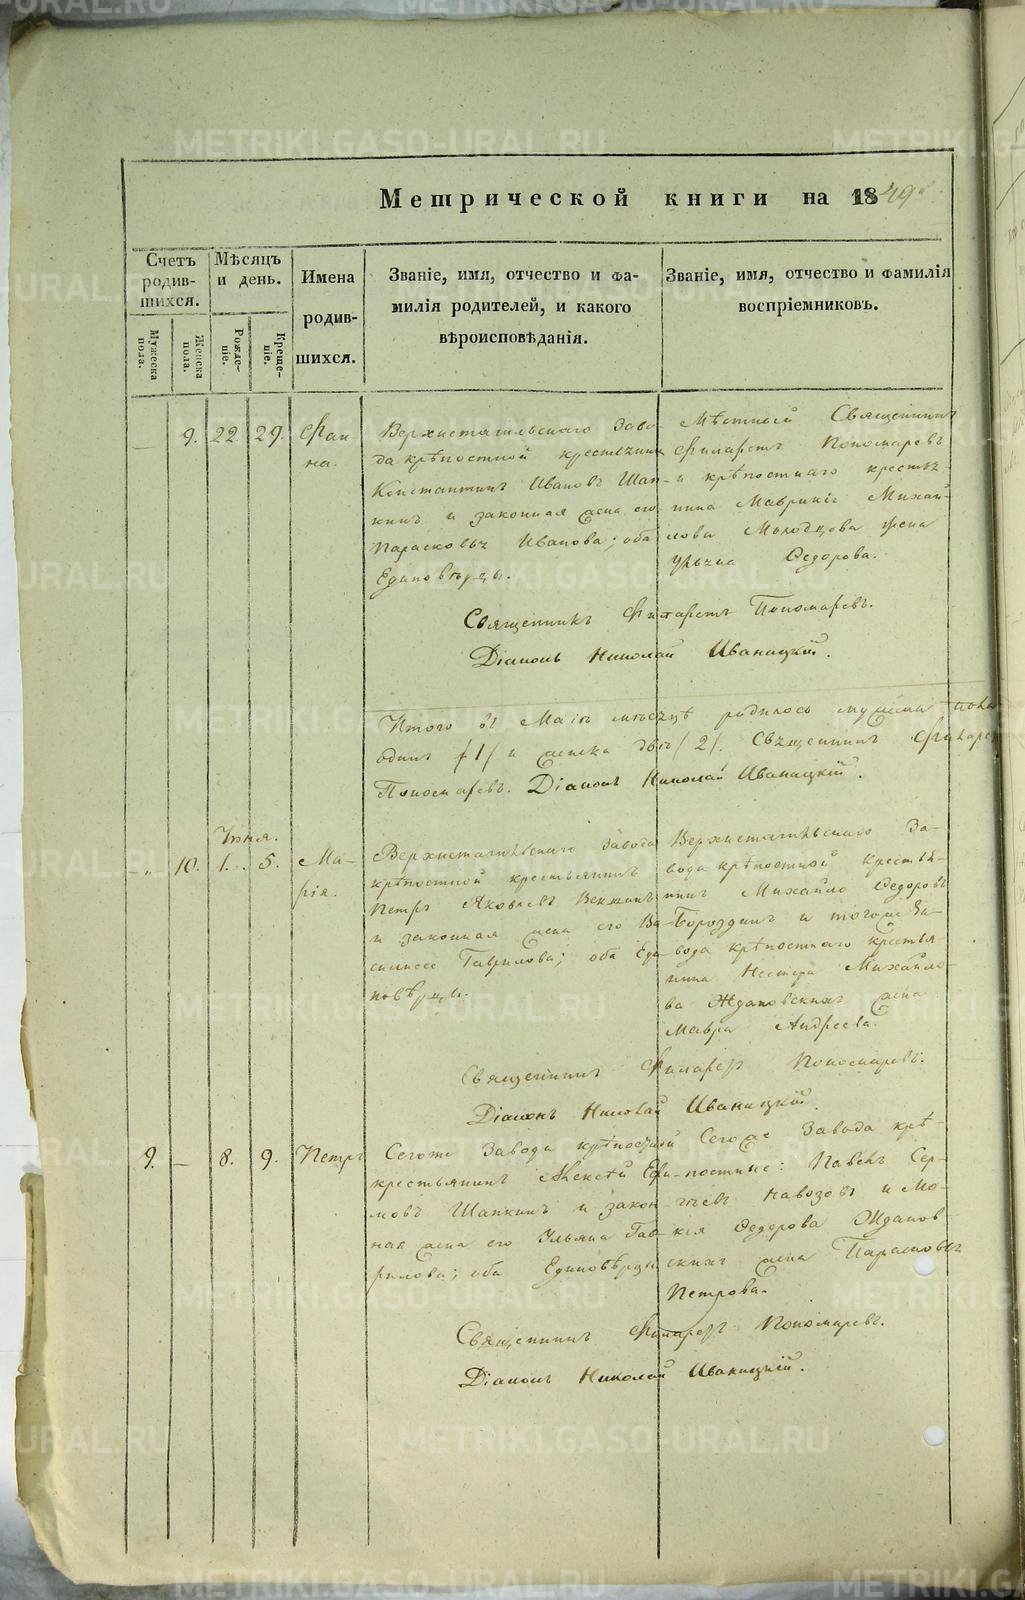 Метрической книги на 1849й
Счетъ родив-шихся.
Мѣсяцъ и день.
Имена родив-шихся.
Званіе, имя, отчество и фа-
милія родителей, и какого
вѣроисповѣданія.
Званіе, имя, отчество и фамилія
воспріемниковъ.
Мужеска пола.
Женска пола.
Рожде-ніе.
Креще-ніе.
— 9. 22. 29. Фаи
на.
Верхнетагильскаго Заво-
да крѣпостной крестьянинъ
Константинъ Ивановъ Шап-
кинъ и законная жена его
Парасковья Иванова; оба
Единовѣрцы.
Мѣстный Священникъ
Филаретъ Пономаревъ
и крѣпостнаго крестья-
нина Маврикія Михай-
лова Молодцова жена
Ульяна Федорова.
Священникъ Филаретъ Пономаревъ.
Діаконъ Николай Иваницкій.
Итого въ Маіѣ мѣсяцѣ родилось мужеска пола
одинъ /1/ и женска двѣ /2/. Священникъ Филарет
Пономаревъ. Діаконъ Николай Иваницкій.
Іюня.
„ 10. 1. 5. Ма-
рія.
Верхнетагильскаго Завода
крѣпостной крестьянинъ
Петръ Яковлевъ
и законная жена его Ва-
силиса Гаврилова; оба Еди-
новѣрцы.
Верхнетагильскаго За-
вода крѣпостной крестья-
нинъ Михайло Федоровъ
Бороздинъ и тогоже За-
вода крѣпостнаго крестья-
нина Нестера Михайло-
ва Ждановскихъ жена
Мавра Андреева.
Священникъ Филаретъ Пономаревъ.
Діаконъ Николай Иваницкій.
9. — 8. 9. Петръ
Сегоже Завода крѣпостной
крестьянинъ Алексѣй Ефи-
мовъ Шапкинъ и закон-
ная жена его Ульяна Гав-
рилова; оба Единовѣрцы
Сегоже Завода крѣ-
постные: Павелъ Сер-
гѣевъ Навозовъ и Мо-
кія Федорова Жданов
скихъ жена Парасковья
Петрова.
Священникъ Филаретъ Пономаревъ.
Діаконъ Николай Иваницкій.